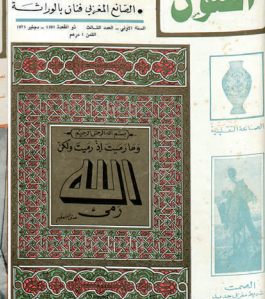 الفنون
• الصانع المغربي فنان بالوراثة
السنة الأولى - العدد الثالث
ذو القعدة 1393 - دجنبر 1973
الثمن 1 درهم
بسم الله الرحمن الرحيم
وما رميت إذ رميت ولكن
الله
رمى
الصناعة التقليدية
الصمت